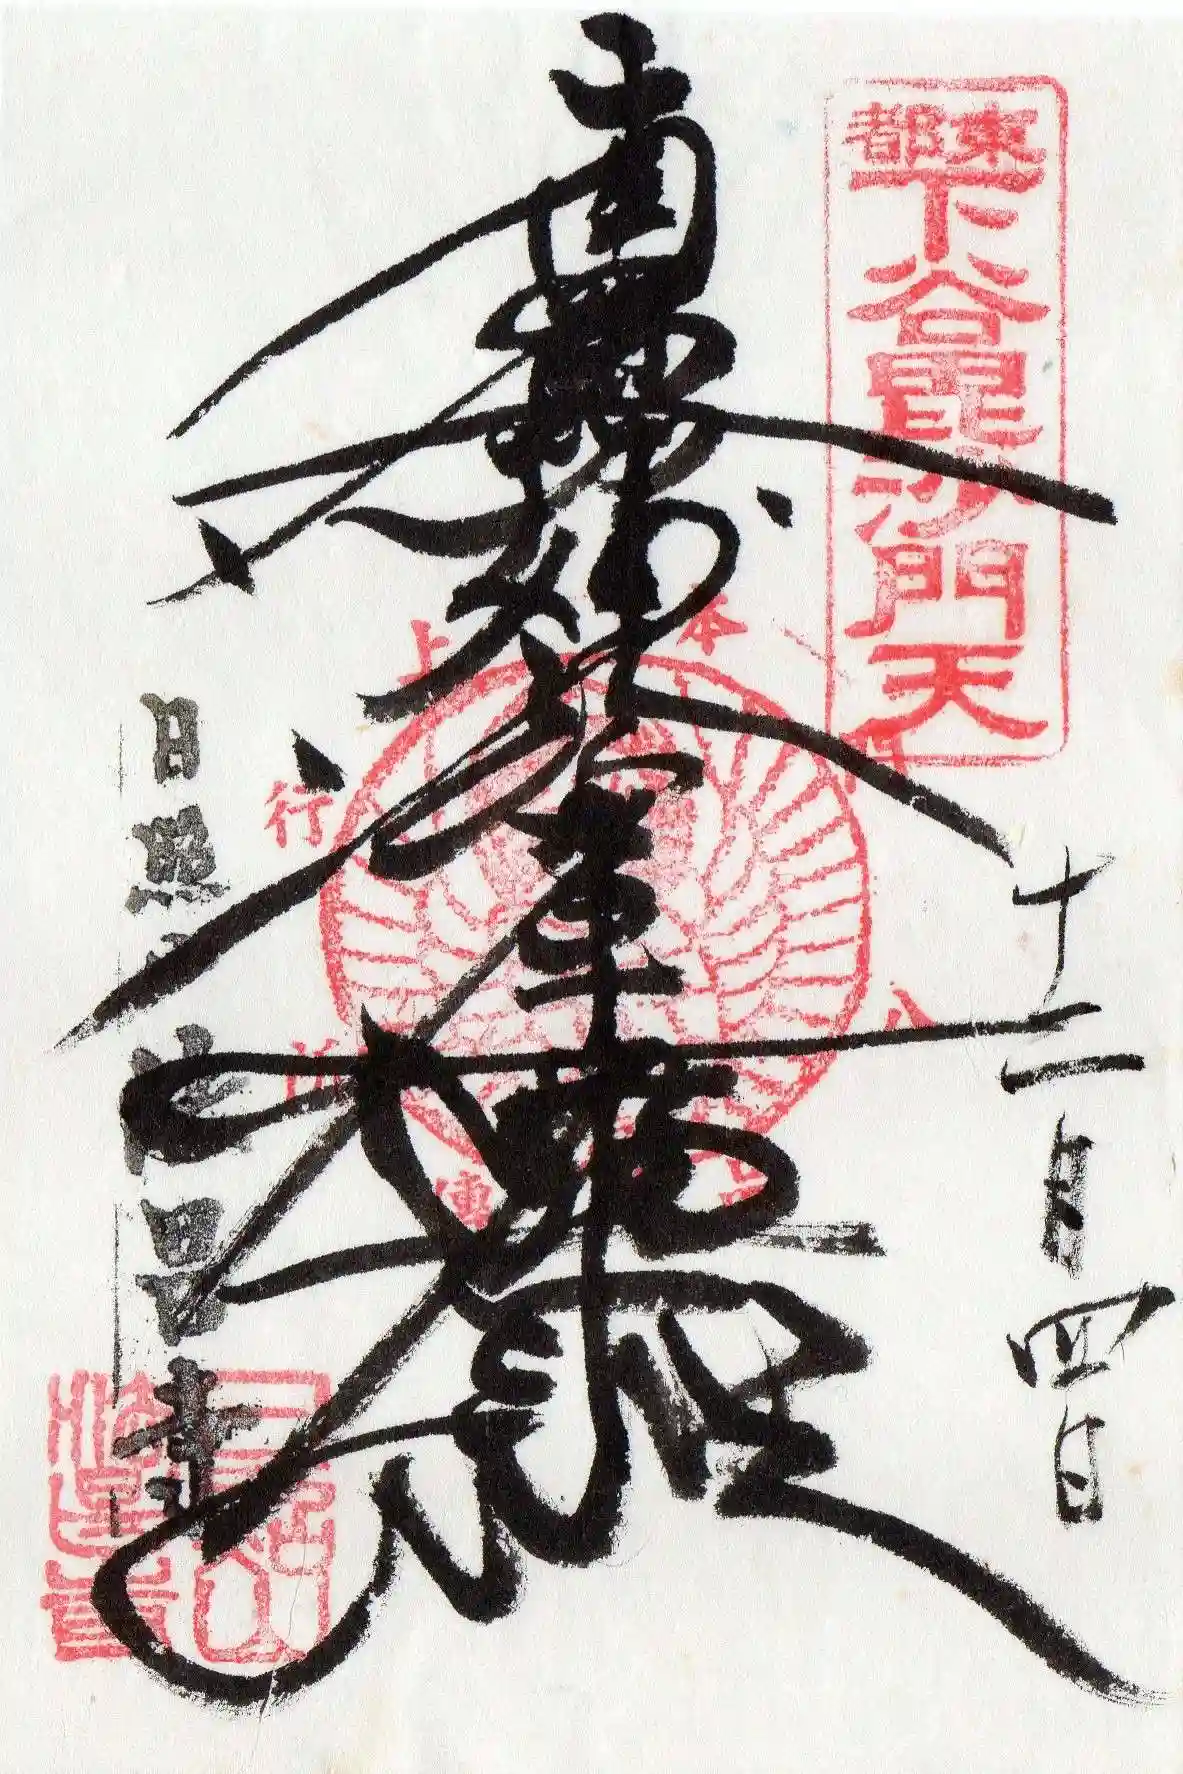 東都
下谷毘沙門天
十二月四日
南無妙法蓮華経
本
上
行
八
傳
日照山法昌寺